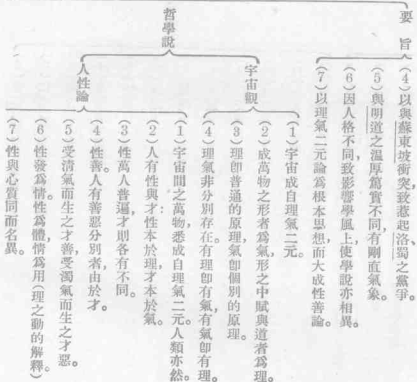 要旨
(4)以與蘇東坡衝突致惹起洛、蜀之黨爭。
(5)與明道之溫厚篤實不同,有剛直氣象。
(6)因人格不同,致影響學風上使學說亦相異。
(7)以理氣二元論為根本思想,而大成性善論。
哲學說
宇宙觀
(1)宇宙成自理氣二元。
(2)成萬物之形者為氣,形之中賦與道者為理。
(3)理卽普通的原理,氣卽個別的原理。
(4)理氣非分別存在。有理卽有氣,有氣卽有理。
人性論
(1)宇宙間之萬物,悉成自理氣二元。人類亦然。
(2)人有性與才:性本於理,才本於氣。
(3)性萬人普遍,才則各有不同。
(4)性善。人有善惡分別者,由於才。
(5)受淸氣而生之才善,受濁氣而生之才惡。
(6)性發為情。性為體,情為用(理之動的解釋)。
(7)性與心實同而名異。